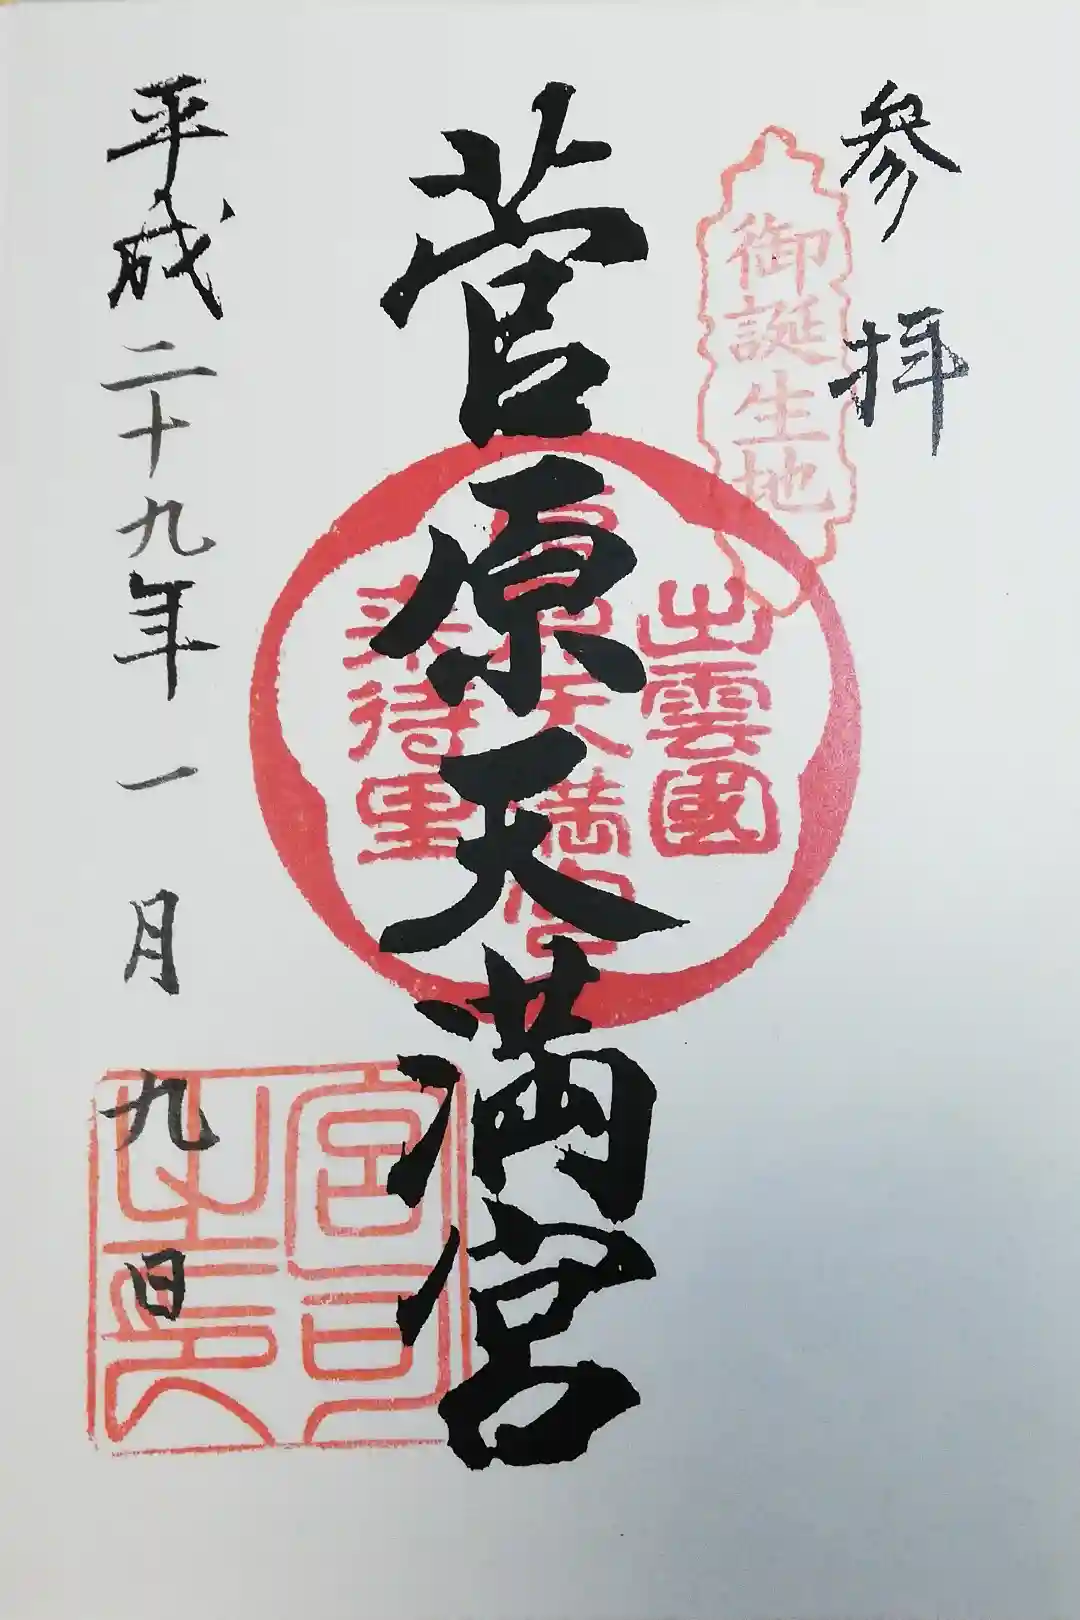 参拝
御誕生地
出雲國
菅原天満宮
来待里
菅原天満宮
宮司之印
平成二十九年一月九日